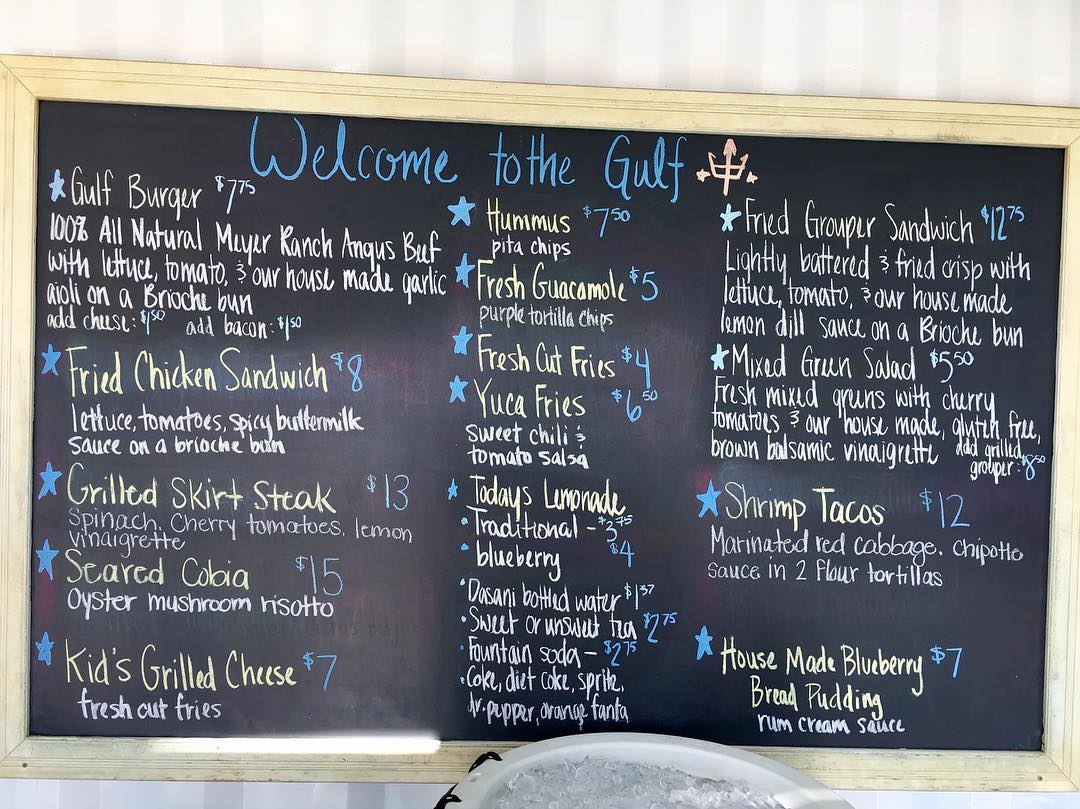 Welcome to the Gulf
Gulf Burger $7.75
100% All Natural Meyer Ranch Angus Beef
with lettuce, tomato, & our house made garlic
aioli on a Brioche bun
add cheese: $1.50 add bacon: $1.50
Fried Chicken Sandwich $8
lettuce, tomatoes, spicy buttermilk
sauce on a brioche bun
Grilled Skirt Steak $13
Spinach, Cherry tomatoes, lemon
vinaigrette
Seared Cobia $15
oyster mushroom risotto
Kid's Grilled Cheese $7
fresh cut fries
Hummus $7.50
pita chips
Fresh Guacamole $5
purple tortilla chips
Fresh Cut Fries $4
Yuca Fries $6.50
Sweet chili &
tomato salsa
Todays Lemonade
Traditional - $3.75
blueberry $4
Dasani bottled water $1.37
Sweet or unsweet tea $2.75
Fountain soda - $2.75
Coke, diet coke, sprite,
dr. pepper, orange fanta
Fried Grouper Sandwich $12.75
Lightly battered & fried crisp with
lettuce, tomato, & our house made
lemon dill sauce on a Brioche bun
Mixed Green Salad $5.50
Fresh mixed greens with cherry
tomatoes & our house made, gluten free,
brown balsamic vinaigrette add grilled
grouper: $8.50
Shrimp Tacos $12
Marinated red cabbage, chipotle
sauce in 2 flour tortillas
House Made Blueberry $7
Bread Pudding
rum cream sauce